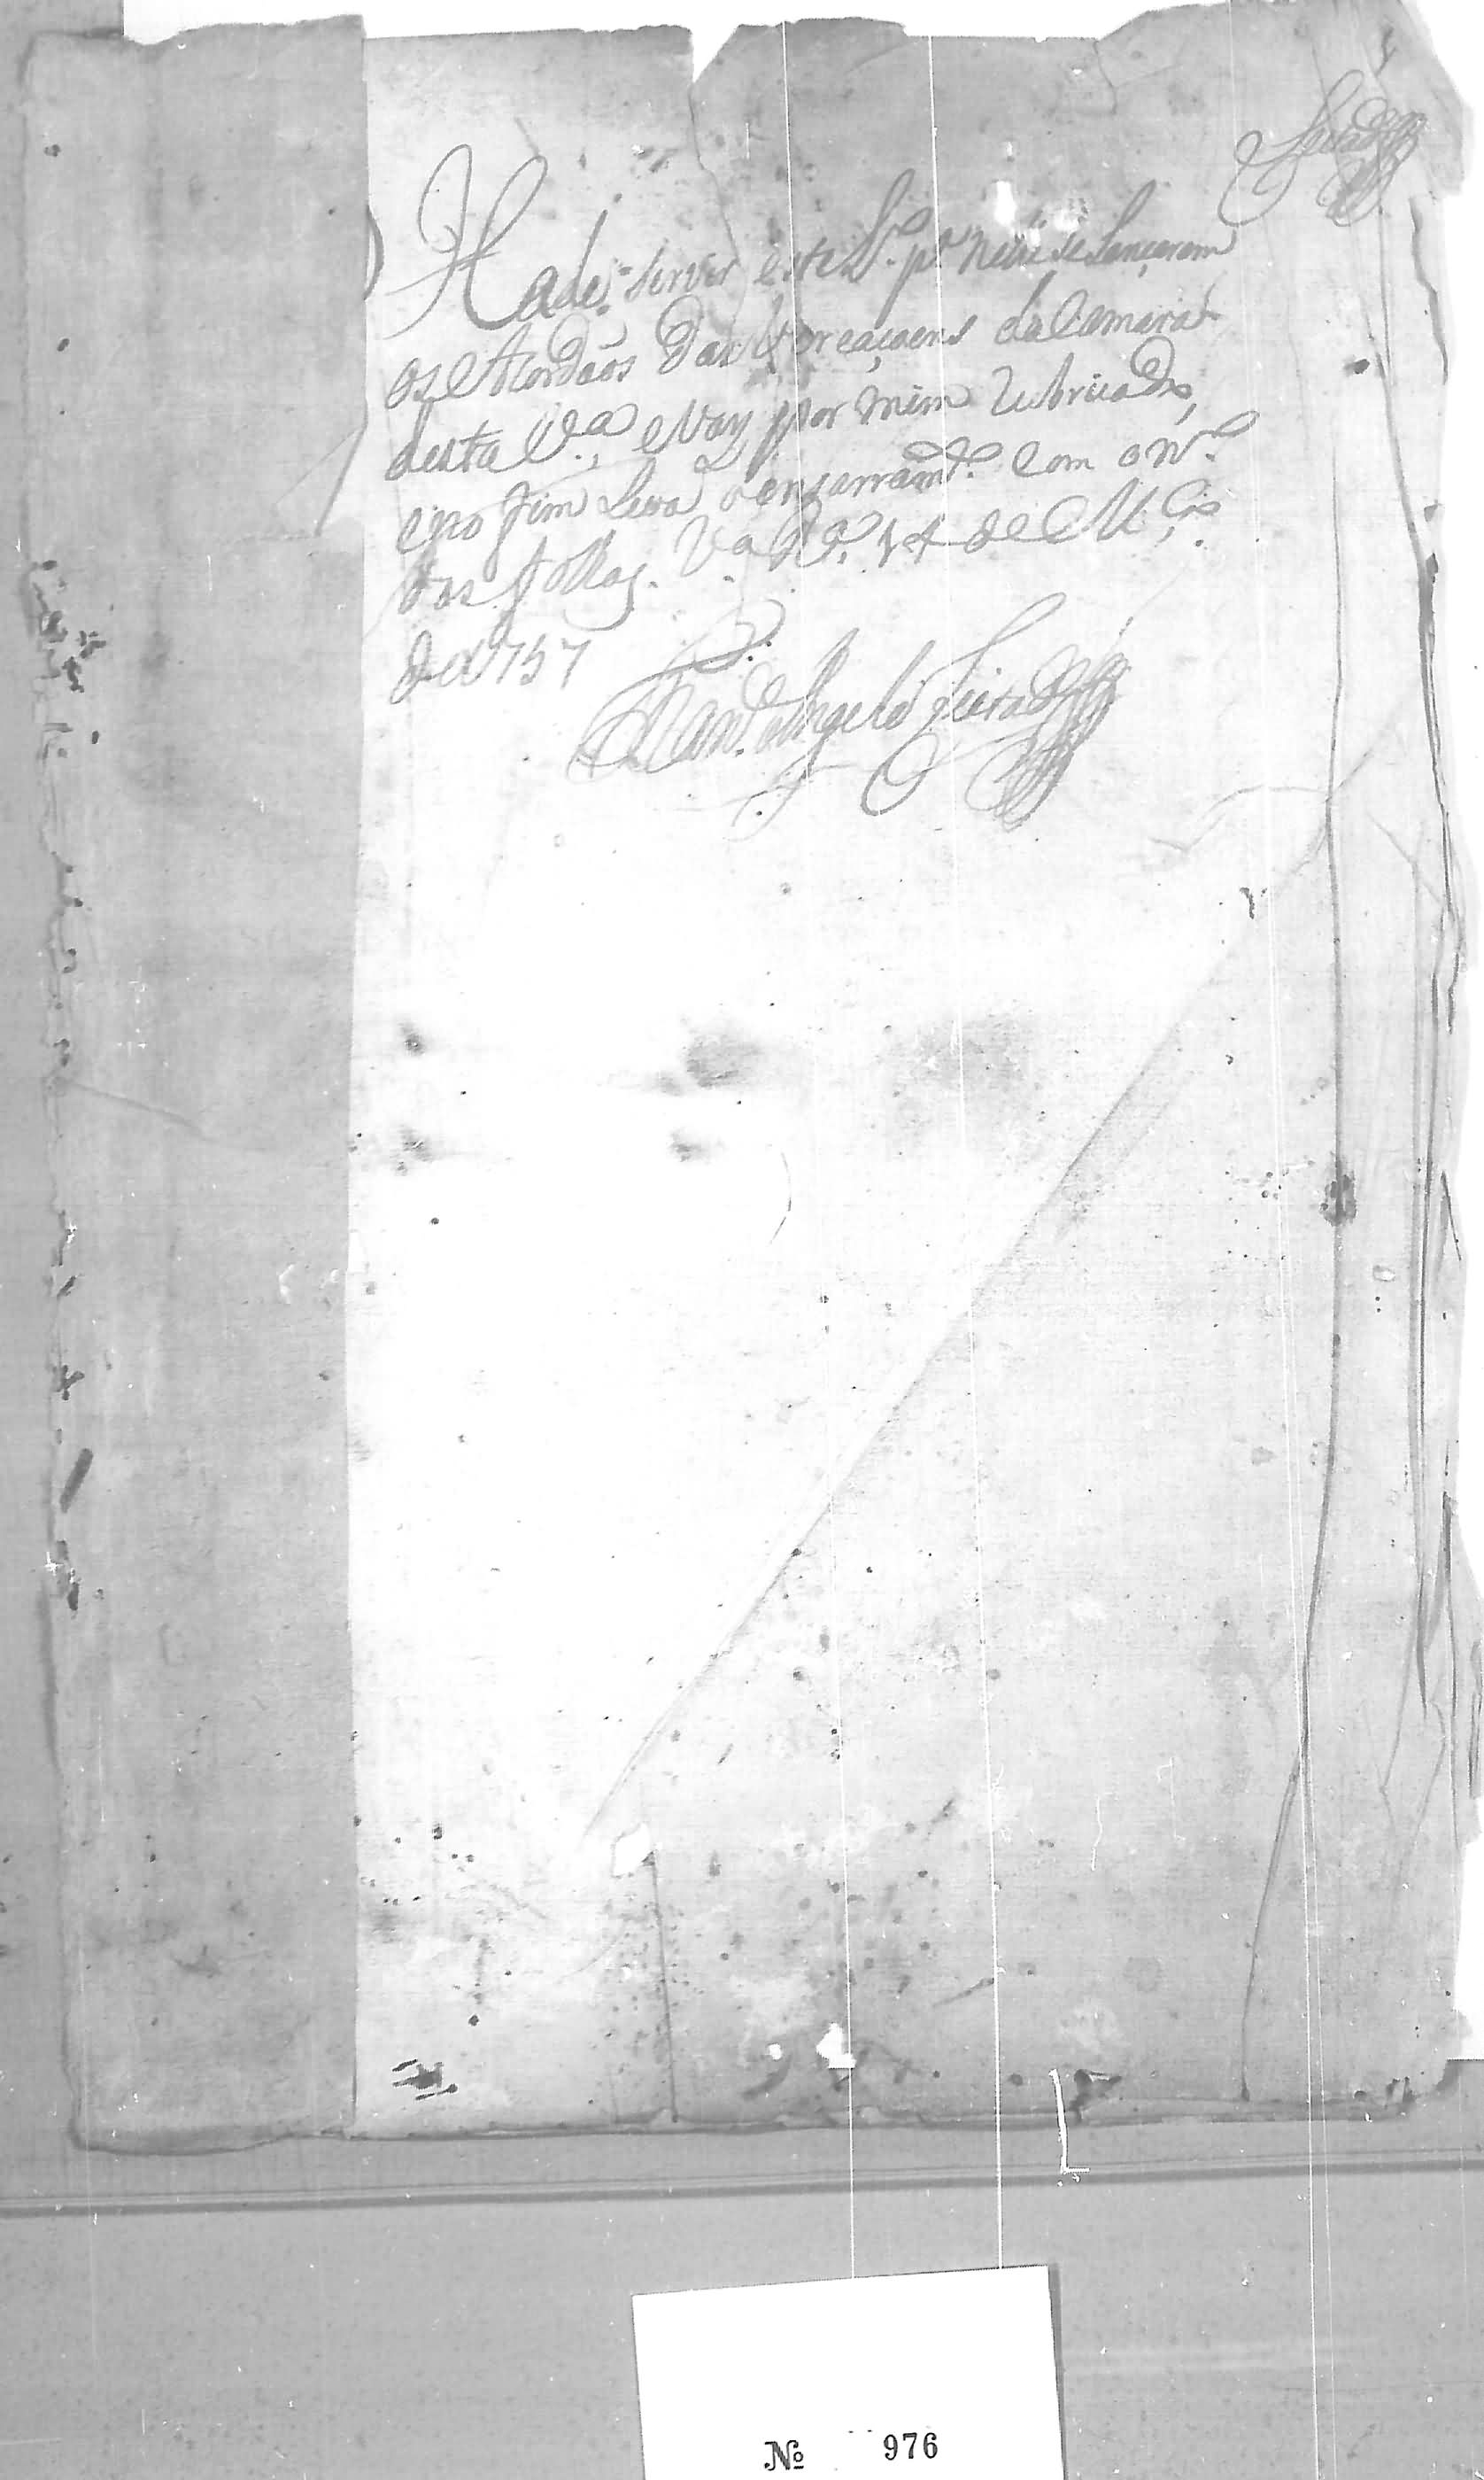 1
Furtado
Hade servir este L.º p.ª nelle se Lançarem
os Acordãos das Vereaçoens da Camara
desta V.ª, e Vay por mim Rubricado,
e no fim Leva o ensarram.to Com o n.º
das folhas. V.ª R.ª 14 de M.ço
de 1757
Man.el Angelo Furtado
№ 976